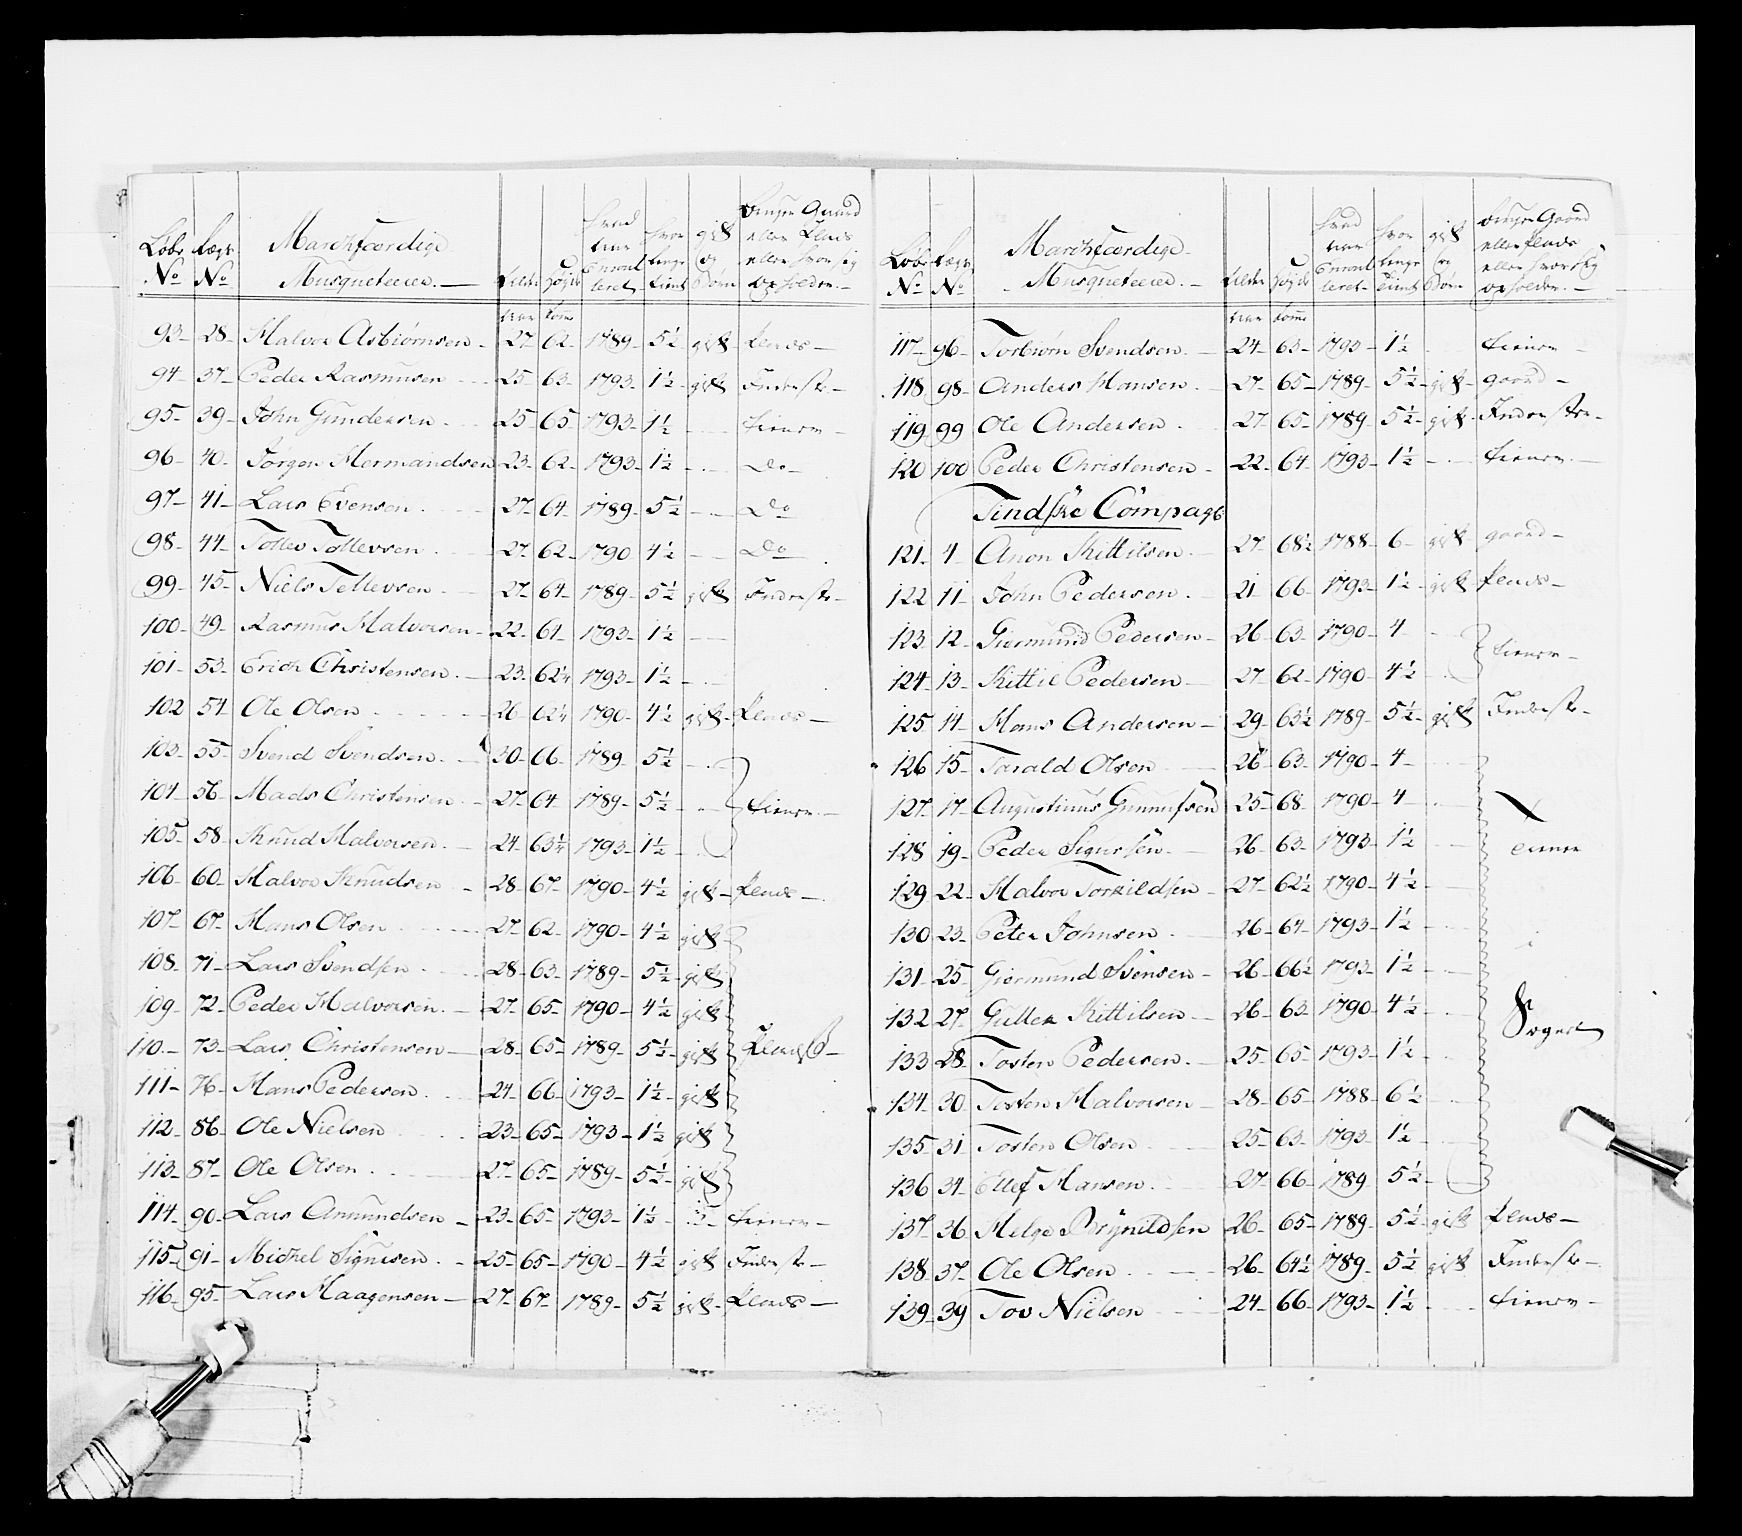 Løbe No | Lægs No | Marchfærdige Musqueteerer. | Alder | Høyde | hvad aar Enroulleret | hvor længe tient | gift og Børn | bruger Gaard eller Plads eller hvor sig opholder.
aar | tomr
93 | 28 | Halvor Asbiørnsen | 27 | 62 | 1789 | 5½ | gift | Plads
94 | 37 | Peder Rasmusen | 25 | 63 | 1793 | 1½ | gift | Inderste
95 | 39 | John Gundersen | 25 | 65 | 1793 | 1½ | | tiener
96 | 40 | Jørgen Hermandsen | 23 | 62 | 1793 | 1½ | | Do
97 | 41 | Lars Evensen | 27 | 64 | 1789 | 5½ | | Do
98 | 44 | Tollev Tollevsen | 27 | 62 | 1790 | 4½ | | Do
99 | 45 | Niels Tellevsen | 27 | 64 | 1789 | 5½ | gift | Inderste
100 | 49 | Rasmus Halvorsen | 22 | 61 | 1793 | 1½
101 | 53 | Erich Christensen | 23 | 62¼ | 1793 | 1½
102 | 54 | Ole Olsen | 26 | 62¼ | 1790 | 4½ | gift | Plads
103 | 55 | Svend Svendsen | 30 | 66 | 1789 | 5½
104 | 56 | Mads Christensen | 27 | 64 | 1789 | 5½ | | tiener
105 | 58 | Knud Halvorsen | 24 | 63¼ | 1793 | 1½
106 | 60 | Halvor Knudsen | 28 | 67 | 1790 | 4½ | gift | Plads
107 | 67 | Hans Olsen | 27 | 62 | 1790 | 4½ | gift
108 | 71 | Lars Svendsen | 28 | 63 | 1789 | 5½ | gift
109 | 72 | Peder Halvorsen | 27 | 65 | 1790 | 4½ | gift
110 | 73 | Lars Christensen | 28 | 65 | 1789 | 5½ | gift | Plads
111 | 76 | Hans Pedersen | 24 | 66 | 1793 | 1½ | gift
112 | 86 | Ole Nielsen | 23 | 65 | 1793 | 1½ | gift
113 | 87 | Ole Olsen | 27 | 65 | 1789 | 5½ | gift
114 | 90 | Lars Amundsen | 23 | 65 | 1793 | 1½ | | tiener
115 | 91 | Michel Sigursen | 25 | 65 | 1790 | 4½ | gift | Inderste
116 | 95 | Lars Haagensen | 27 | 67 | 1789 | 5½ | gift | Plads
Løbe No | Lægs No | Marchfærdige Musqueteerer. | Alder | Høyde | hvad aar Enroulleret | hvor længe tient | gift og Børn | bruger Gaard eller Plads eller hvor sig opholder.
aar | tomr
117 | 96 | Torbiørn Svendsen | 24 | 63 | 1793 | 1½ | | tiener
118 | 98 | Anders Hansen | 27 | 65 | 1789 | 5½ | gift | gaard
119 | 99 | Ole Andersen | 27 | 65 | 1789 | 5½ | gift | Inderster
120 | 100 | Peder Christensen | 22 | 64 | 1793 | 1½ | | tiener
Tindske Compag
121 | 4 | Anon Kittilsen | 27 | 68½ | 1788 | 6 | gift | gaard
122 | 11 | John Pedersen | 21 | 66 | 1793 | 1½ | gift | Plads
123 | 12 | Giermund Pedersen | 26 | 63 | 1790 | 4
124 | 13 | Kittil Pedersen | 27 | 62 | 1790 | 4½ | | tiener
125 | 14 | Hans Andersen | 29 | 63½ | 1789 | 5½ | gift | Inderste
126 | 15 | Tarald Olsen | 26 | 63 | 1790 | 4
127 | 17 | Augustinus Gunnufsen | 25 | 68 | 1790 | 4
128 | 19 | Peder Sigursen | 26 | 63 | 1793 | 1½
129 | 22 | Halvor Torkildsen | 27 | 62½ | 1790 | 4½
130 | 23 | Peter Johnsen | 26 | 64 | 1793 | 1½ | | i
131 | 25 | Giermund Svensen | 26 | 66½ | 1793 | 1½
132 | 27 | Gullek Kittilsen | 26 | 63 | 1790 | 4½ | | Sognet
133 | 28 | Tosten Pedersen | 25 | 65 | 1793 | 1½
134 | 30 | Tosten Halvorsen | 28 | 65 | 1788 | 6½
135 | 31 | Tosten Olsen | 25 | 63 | 1793 | 1½
136 | 34 | Ellef Hansen | 27 | 66 | 1789 | 5½
137 | 36 | Helge Brynildsen | 26 | 65 | 1789 | 5½ | gift | Plads
138 | 37 | Ole Olsen | 26 | 64½ | 1789 | 5½ | gift | Inderste
139 | 39 | Tov Nielsen | 24 | 66 | 1793 | 1½ | | tiener